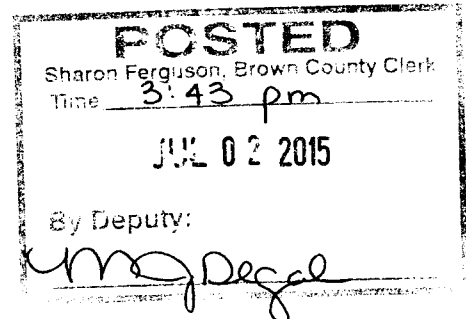 POSTED
Sharon Ferguson, Brown County Clerk
Time 3:43 pm
JUL 02 2015
By Deputy: